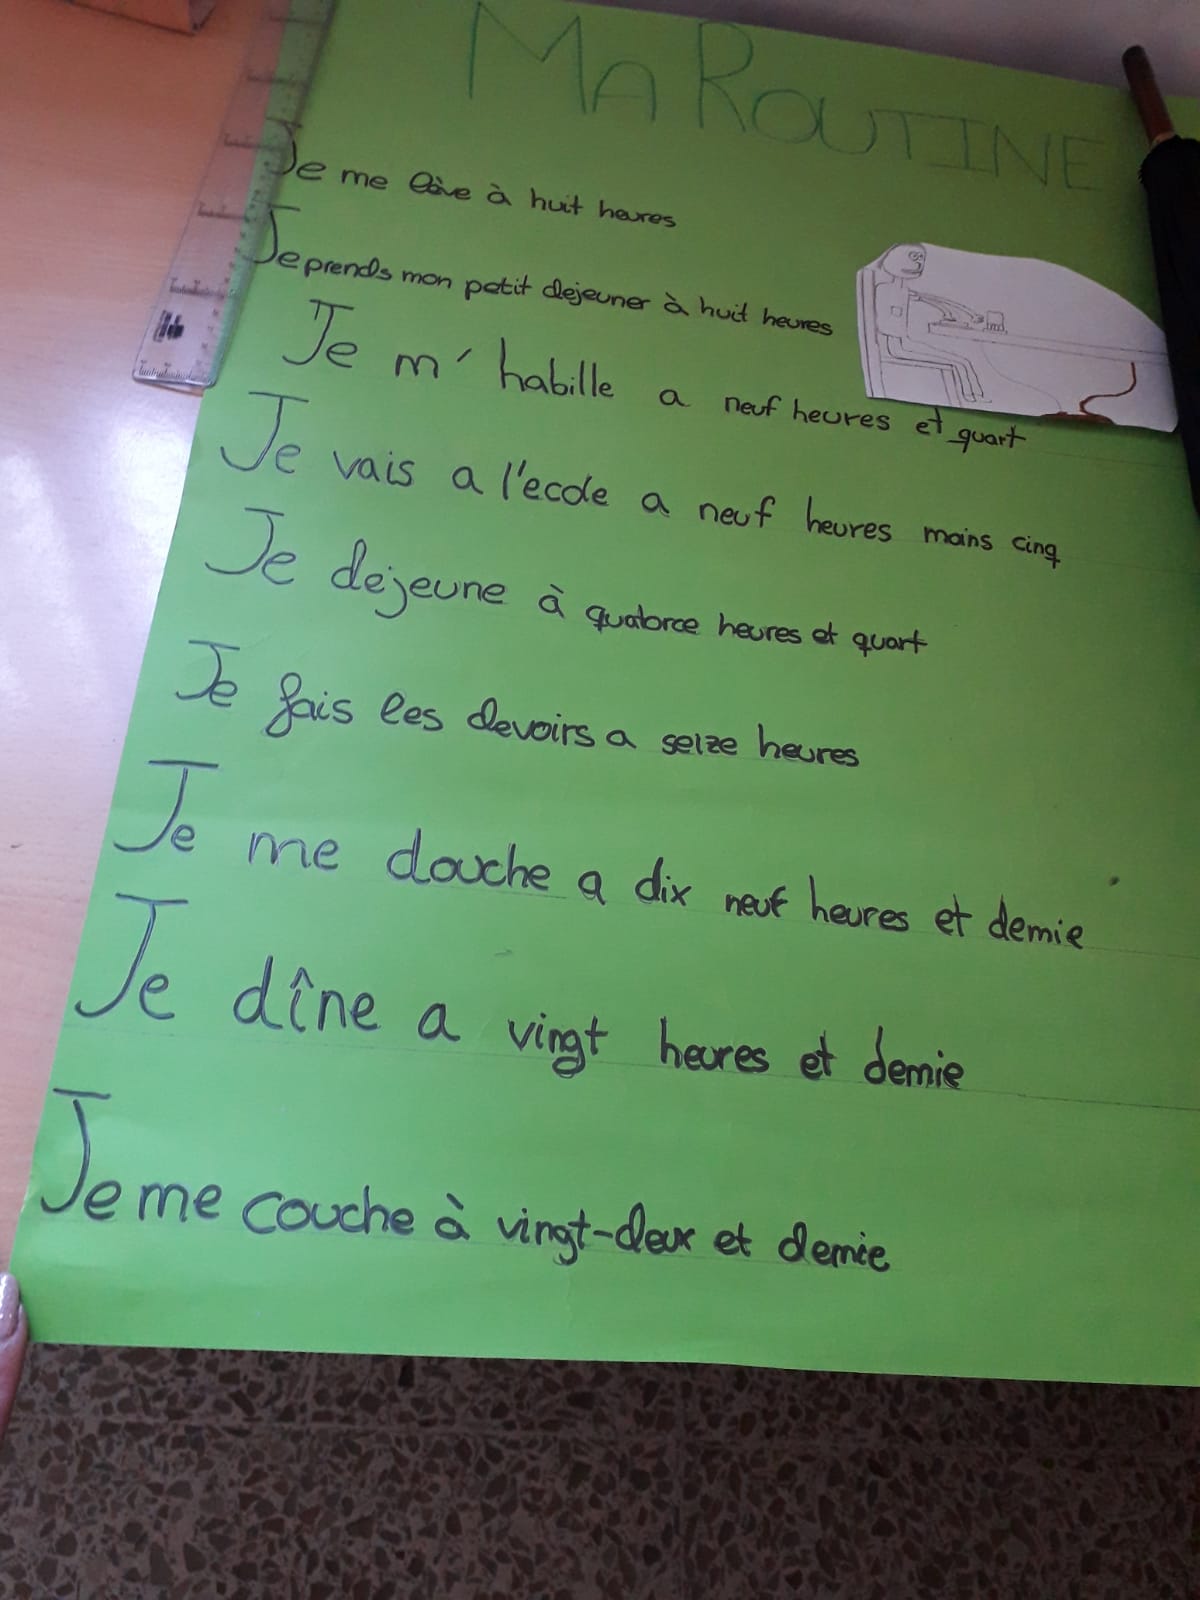 MA ROUTINE
Je me lève à huit heures
Je prends mon petit dejeuner à huit heures
Je m' habille a neuf heures et quart
Je vais a l'ecole a neuf heures moins cinq
Je dejeune à quatorce heures et quart
Je fais les devoirs a seize heures
Je me douche a dix neuf heures et demie
Je dîne a vingt heures et demie
Je me couche à vingt-deux et demie